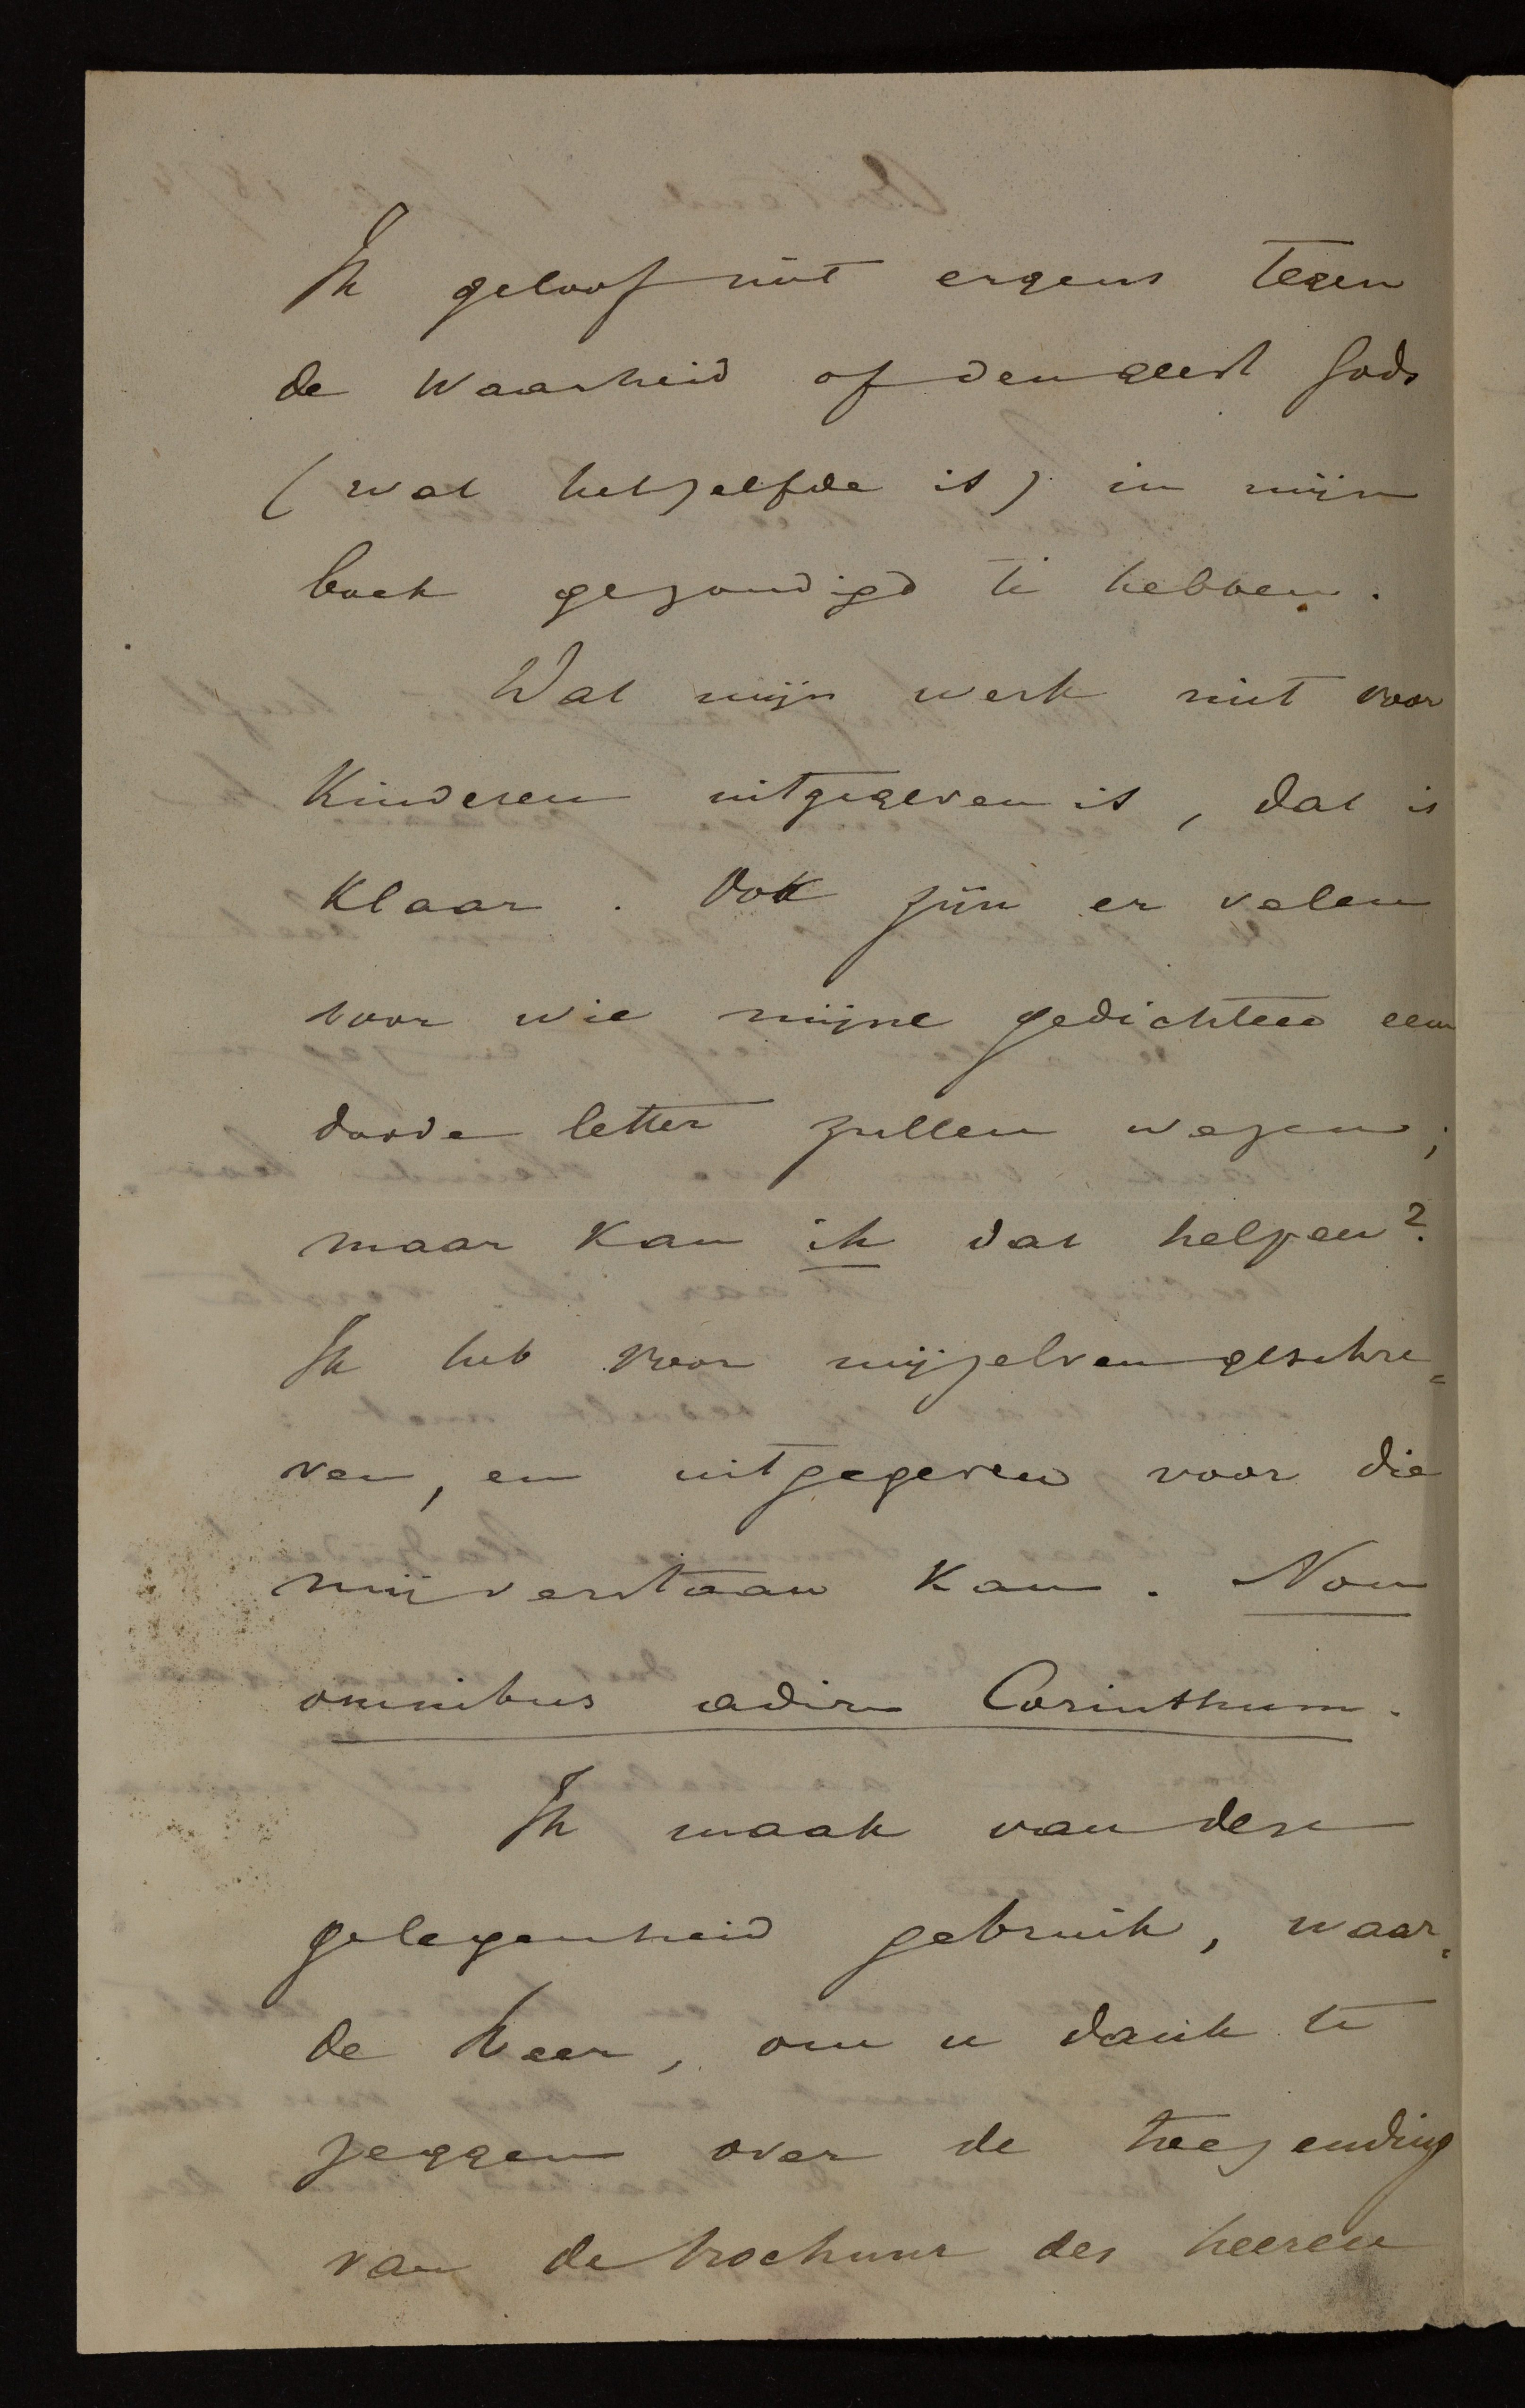 Ik geloof niet ergens tegen
de waarheid of den geest Gods
(wat hetzelfde is) in mijn
boek gezondigd te hebben.
Dat mijn werk niet voor
Kinderen uitgegeven is, dat is
Klaar. Ook zijn er velen
voor wie mijne gedichten een
doode letter zullen wezen;
maar kan ik dat helpen?
Ik heb voor mijzelven geschre=
ven, en uitgegeven voor die
mij verstaan kan. Non
omnibus adire Corinthum.
Ik maak van dese
gelegenheid gebruik, waar=
de heer, om u dank te
zeggen over de toezending
van de brochuur des heeren